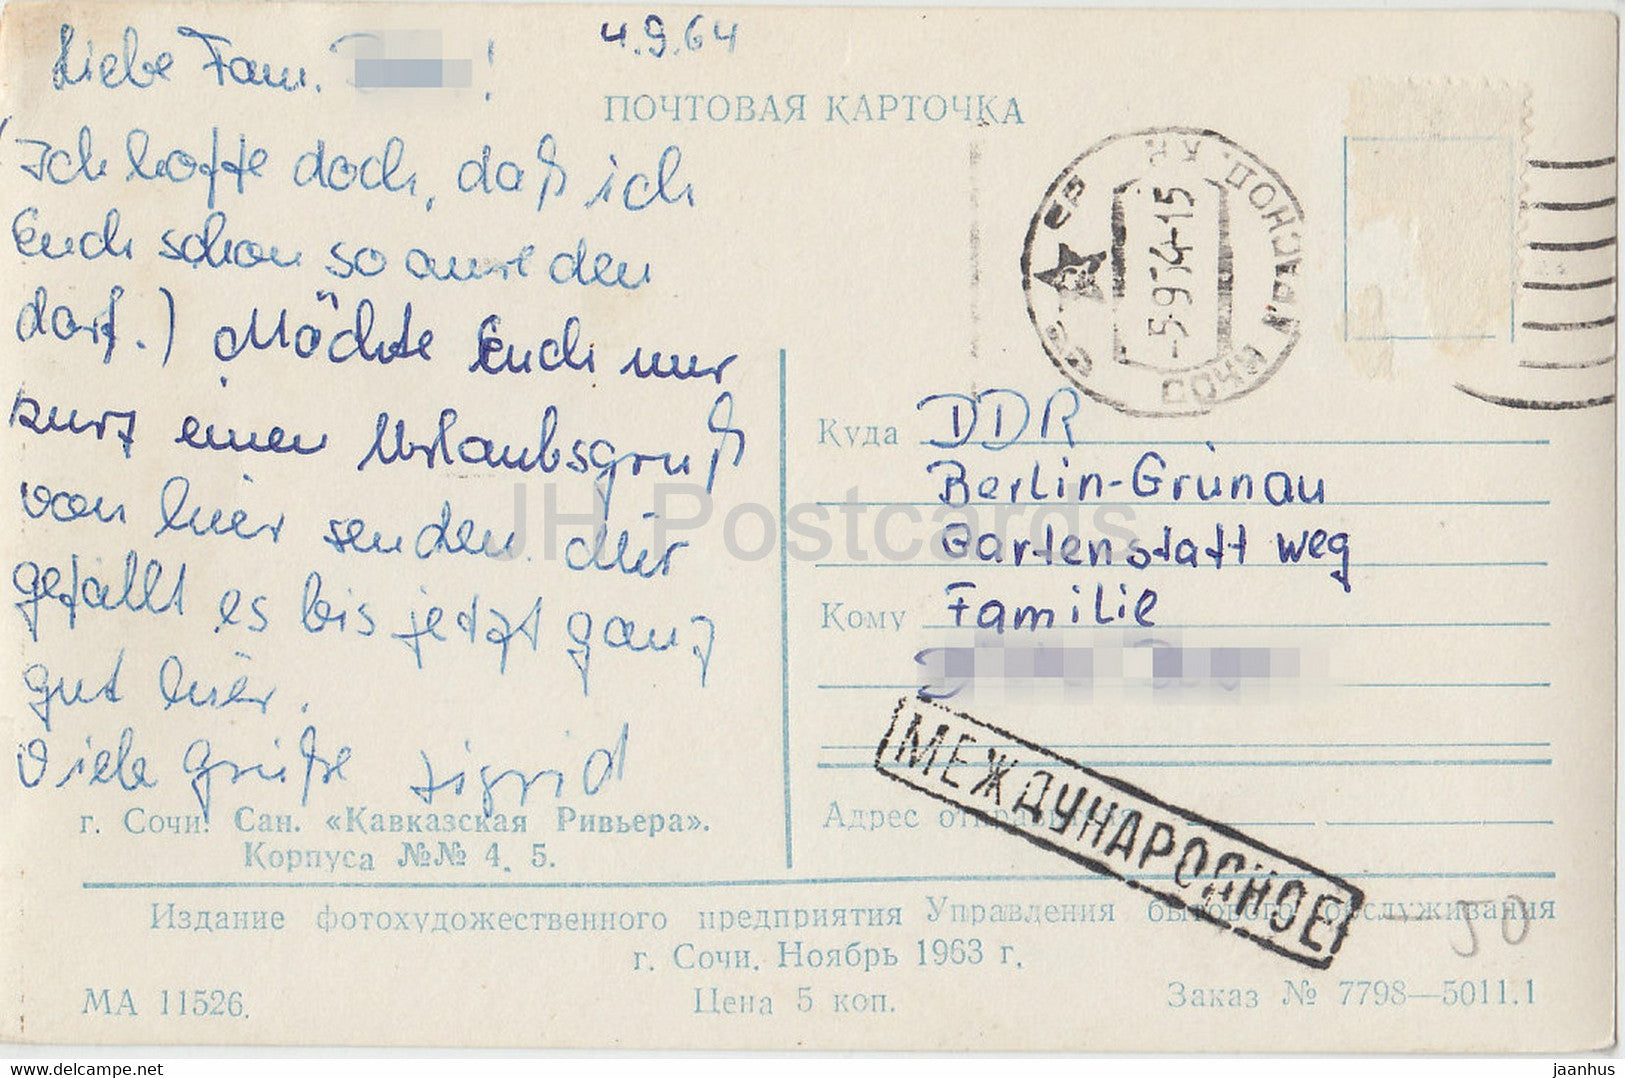 4.9.64
Liebe Fam. !
ПОЧТОВАЯ КАРТОЧКА
(Ich hoffe doch, daß ich
Euch schon so anreden
darf.) Möchte Euch nur
kurz einen Urlaubsgruß
von hier senden. Mir
gefällt es bis jetzt ganz
gut hier.
Viele Grüße Sigrid
г. Сочи. Сан. «Кавказская Ривьера».
Корпуса №№ 4, 5.
СССР
СОЧИ КРАСНОД. КР.
-5964-15
Куда DDR
Berlin-Grünau
Gartenstatt weg
Кому Familie
МЕЖДУНАРОДНОЕ
Адрес отправителя
Издание фотохудожественного предприятия Управления бытового обслуживания
г. Сочи. Ноябрь 1963 г.
МА 11526. Цена 5 коп. Заказ № 7798—5011.1
-50
JH Postcards
jaanhus